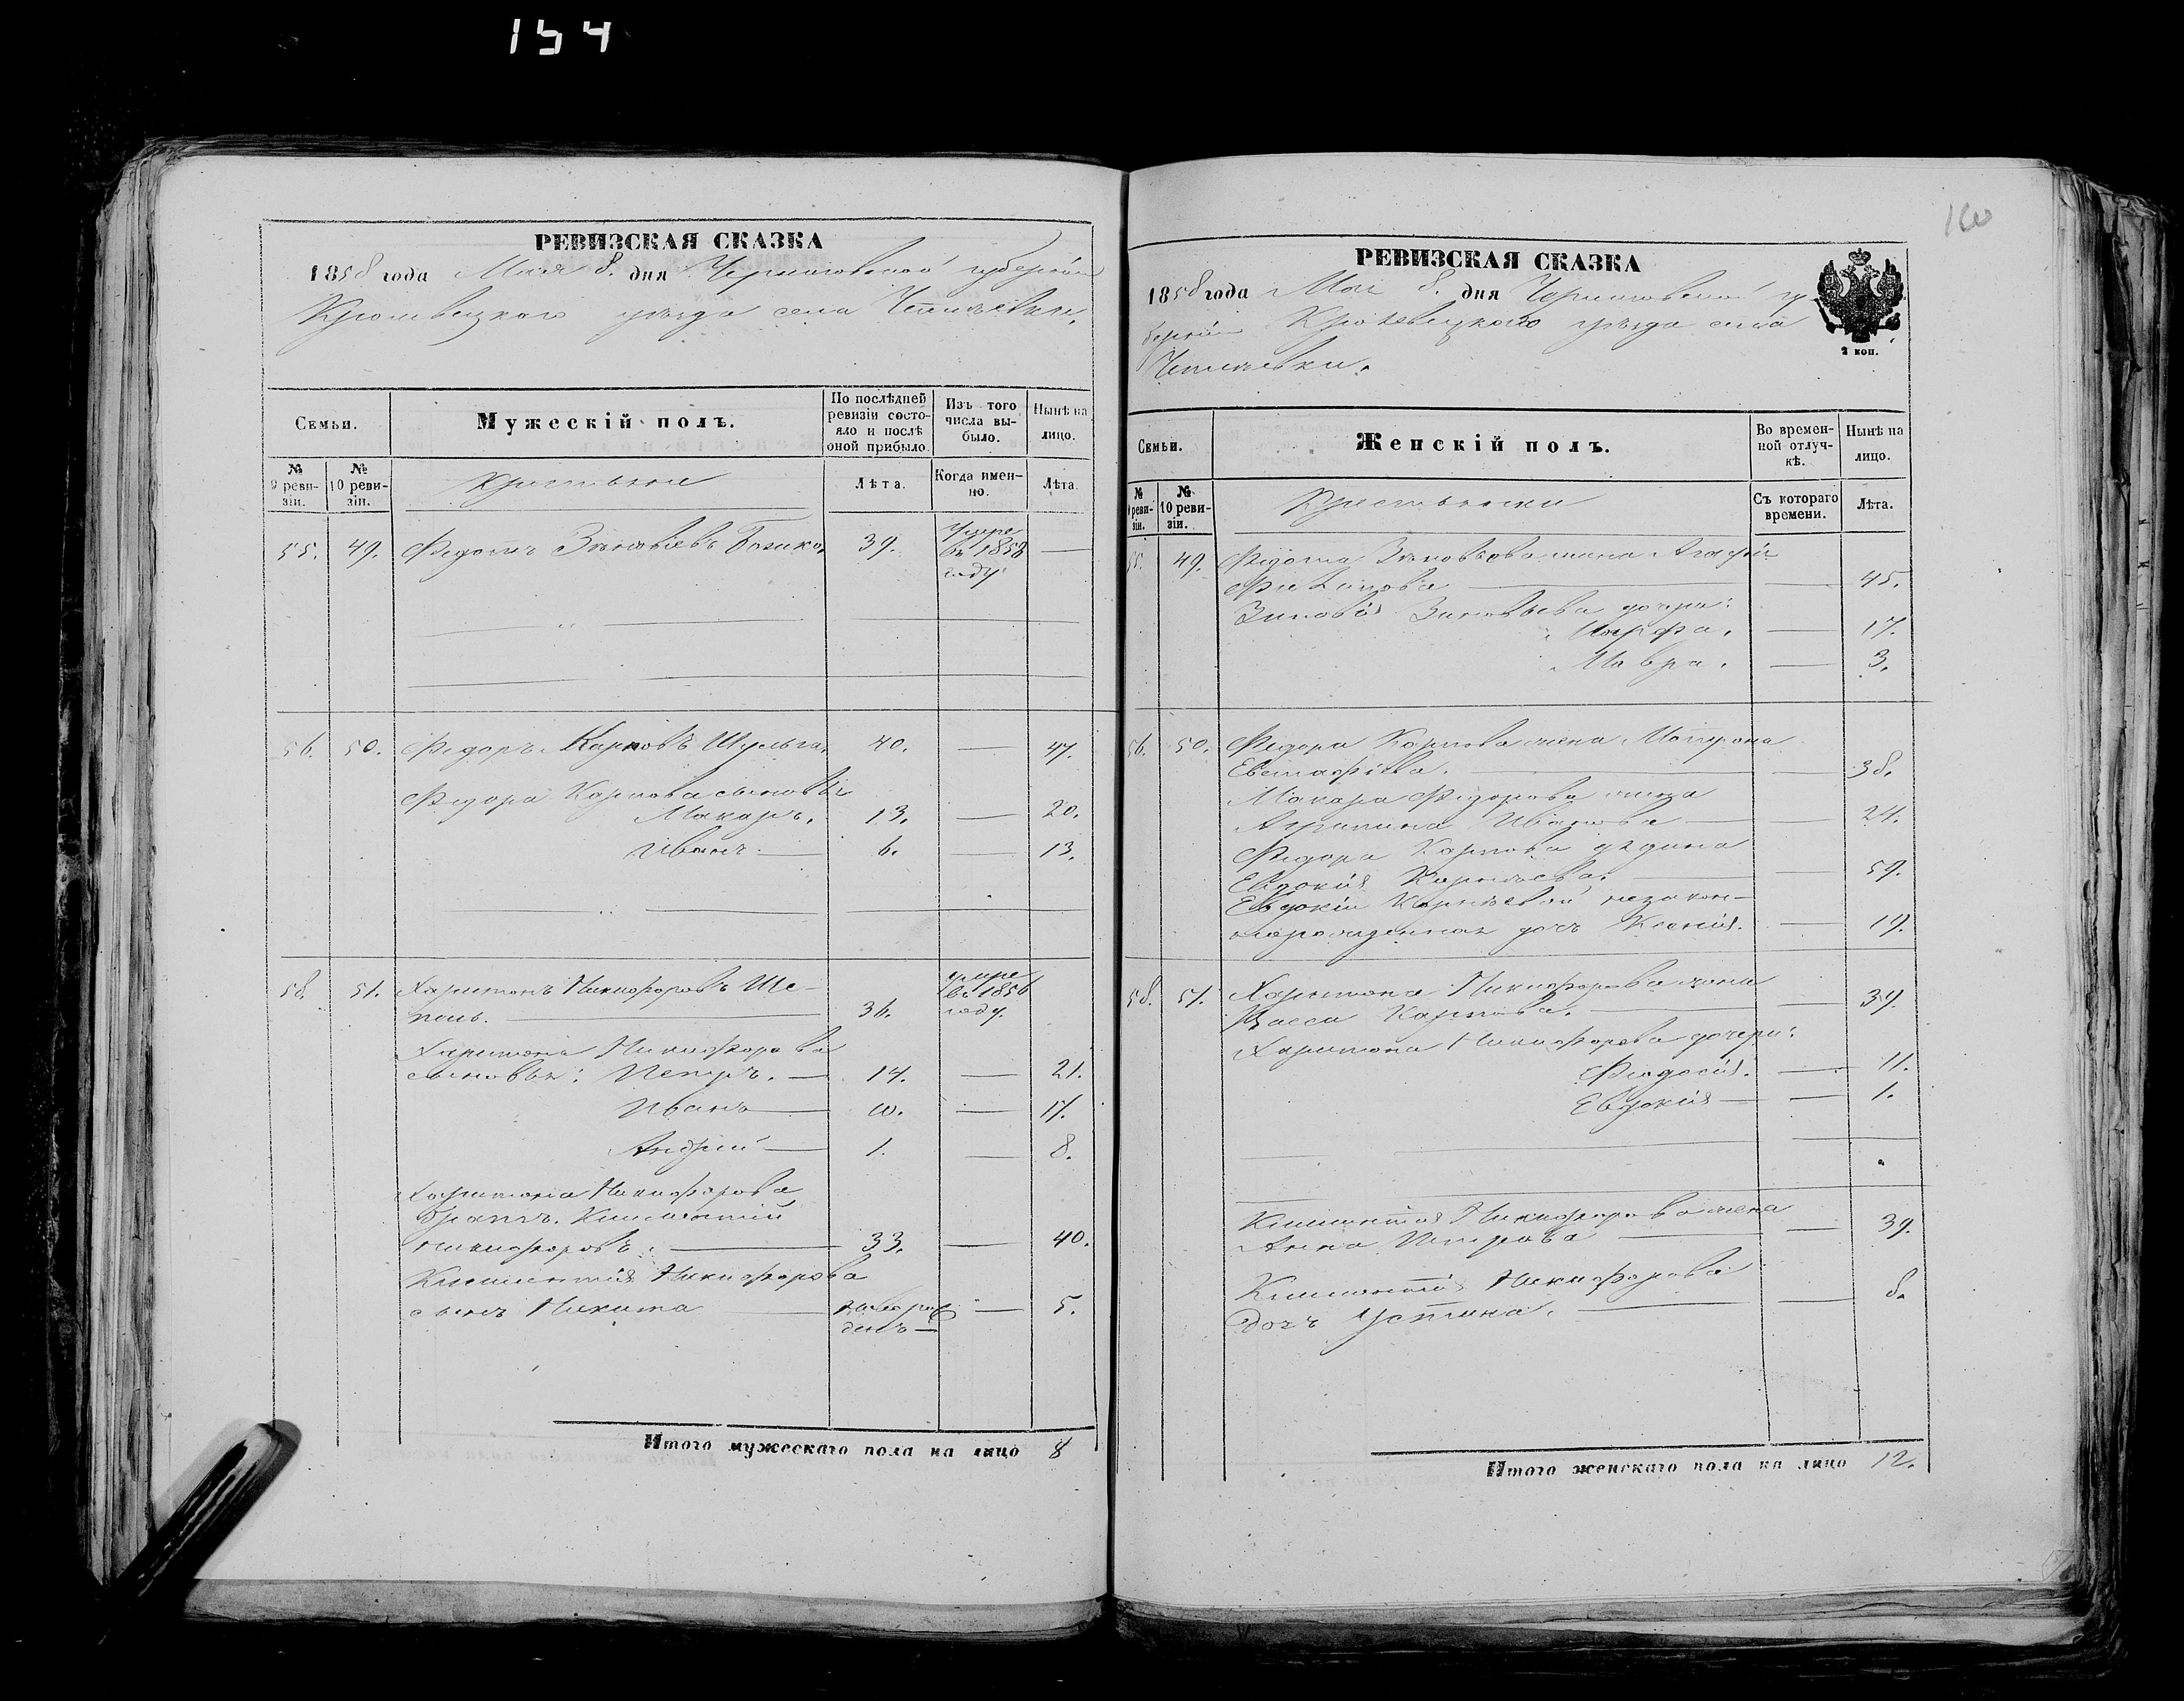 154
РЕВИЗСКАЯ СКАЗКА
1858 года Мая 8. дня Черниговской губерніи
Кролевецкаго уѣзда села
Семьи.
Мужескій полъ.
По послѣдней ревизіи состояло и послѣ оной прибыло.
Изъ того числа выбыло.
Нынѣ на лицо.
№ 9 ревизіи.
№ 10 ревизіи.
Крестьяне
Лѣта.
Когда именно.
Лѣта.
55. 49. Федотъ Зѣновіевъ 39. Умре въ 1858 году —
56. 50. Федоръ Карповъ Шульга, 40. — 47.
Федора Карпова сыновья
Макаръ. 13. — 20.
Иванъ — 6. — 13.
58. 51. Харитонъ Никифоровъ Ще-
36. умре въ 1856 году.
Харитона Никифорова
сыновья: Петръ. — 14. — 21.
Иванъ — 10. — 17.
Андрей — 1. — 8.
Харитона Никифорова
братъ. Климентій
Никифоровъ. — 33. — 40.
Климентія Никифорова
сынъ Никита новорож
денъ — — 5.
Итого мужескаго пола на лицо 8
160
РЕВИЗСКАЯ СКАЗКА
1858 года Мая 8. дня Черниговской гу-
берніи Кролевецкаго уѣзда села
2 коп.
Семьи.
Женскій полъ.
Во временной отлучкѣ.
Нынѣ на лицо.
№ 9 ревизіи.
№ 10 ревизіи.
Крестьянки
Съ котораго времени.
Лѣта.
55. 49. Федота Зѣновьева жена Агафія
— 45.
Зиновія Зиновьева дочери:
Марфа. — 17.
Мавра. — 3.
56. 50. Федора Карпова жена Матрона
Евстафіева. — 38.
Макара Федорова жена
Агрипина Иванова — 24.
Федора Карпова
Евдокія Корнѣева. — 59.
Евдокіи Корнѣевой незакон-
норожденная дочь Ксенія. — 19.
58. 51. Харитона Никифорова жена
Васса Карпова. — 39.
Харитона Никифорова дочери:
Феодосія. — 11.
Евдокія — — 1.
Климентія Никифорова жена
Анна Петрова — 39.
Климентія Никифорова
дочь Устина. — 8.
Итого женскаго пола на лицо 12.